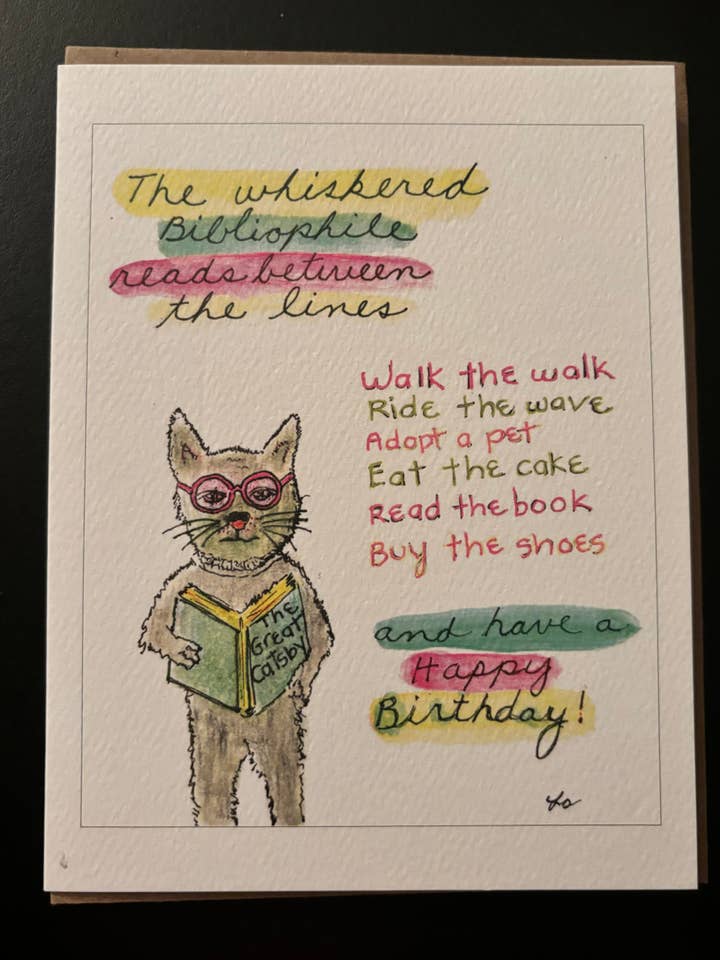 The whiskered
Bibliophile
reads between
the lines
Walk the walk
Ride the wave
Adopt a pet
Eat the cake
Read the book
Buy the shoes
The
Great
Catsby
and have a
Happy
Birthday!